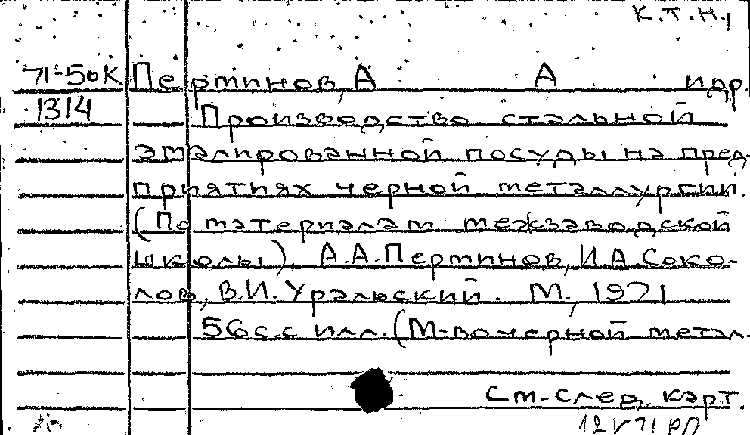 к.т.н.,
71-50К Перминов, А А идр.
1314 Производство стальной
эмалированной посуды на пред-
приятиях черной металлургии.
(По материалам межзаводской
школы). А.А.Перминов, И.А.Соко-
лов, В.И.Уральский. М., 1971
56с.с илл. (М-во черной метал-
См-след. карт.
12 V 71 РП